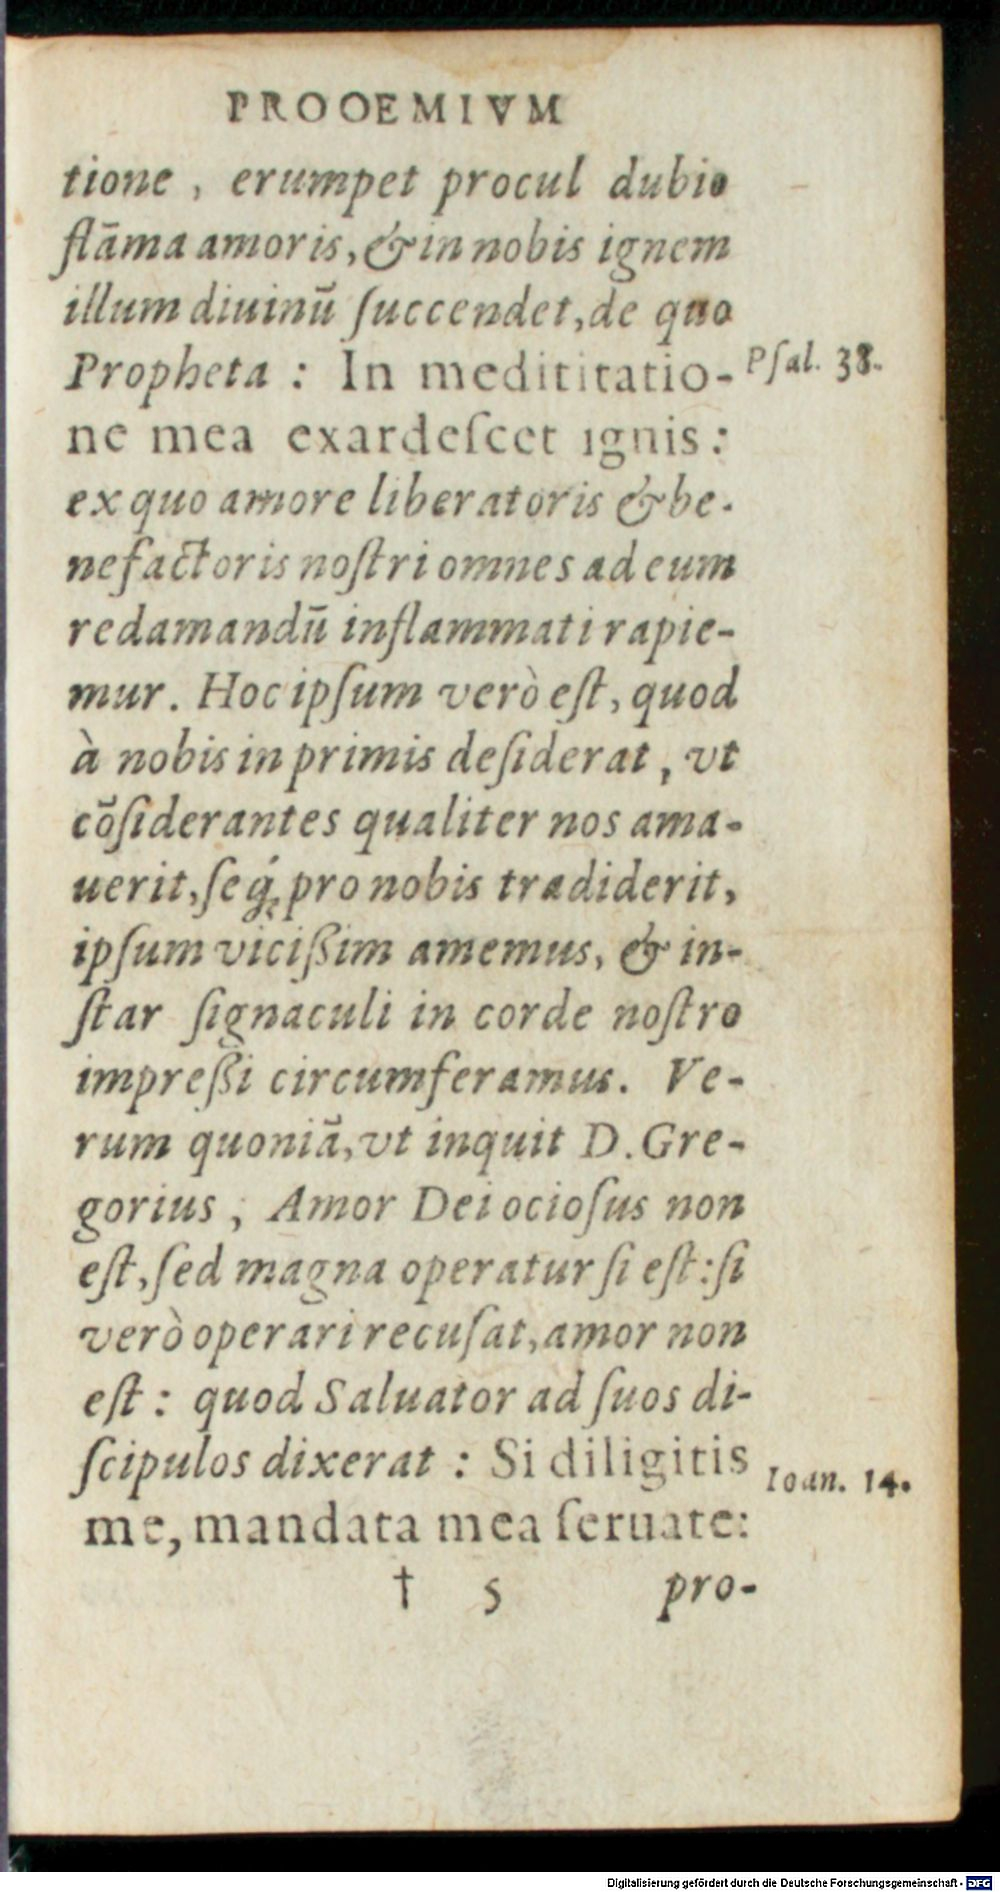 PROOEMIVM
tione, erumpet procul dubio
flāma amoris, & in nobis ignem
illum diuinū ſuccendet, de quo
Propheta: In medititatio- Pſal. 38.
ne mea exardeſcet ignis:
ex quo amore liberatoris & be-
nefactoris noſtri omnes ad eum
redamandū inflammati rapie-
mur. Hoc ipſum verò eſt, quod
à nobis in primis deſiderat, vt
cōſiderantes qualiter nos ama-
uerit, ſeq́; pro nobis tradiderit,
ipſum viciſſim amemus, & in-
ſtar ſignaculi in corde noſtro
impreſſi circumferamus. Ve-
rum quoniā, vt inquit D. Gre-
gorius, Amor Dei ocioſus non
eſt, ſed magna operatur ſi eſt: ſi
verò operari recuſat, amor non
eſt: quod Saluator ad ſuos di-
ſcipulos dixerat: Si diligitis Ioan. 14.
me, mandata mea ſeruate:
† 5 pro-
Digitalisierung gefördert durch die Deutsche Forschungsgemeinschaft - DFG